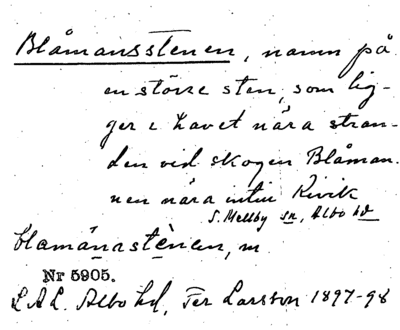 Blåmansstenen, namn på
en större sten, som lig-
ger i havet nära stran-
den vid skogen Blåman-
nen nära intill Kivik
S. Mellby sn, Albo hd
blamánastènen, m
Nr 5905.
L A L. Albo hd, Per Larsson 1897-98